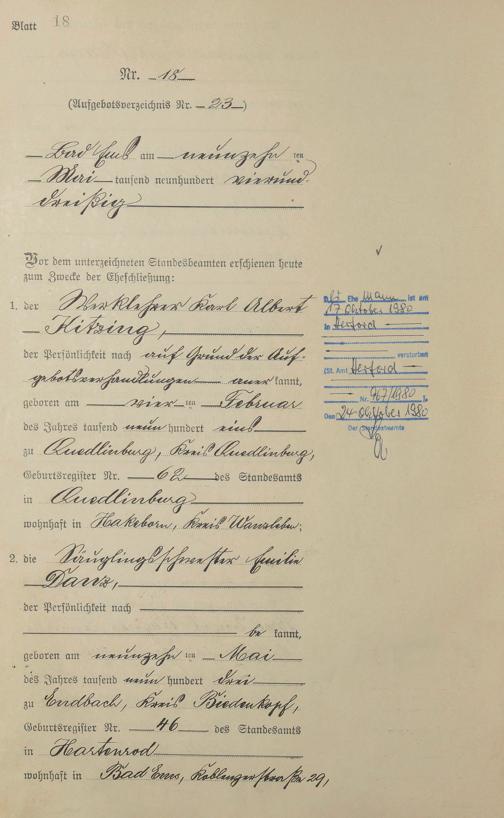 Blatt 18
Nr. 18
(Aufgebotsverzeichnis Nr. 23)
Bad Ems am neunzehn ten
Mai tausend neunhundert vierund-
dreißig
Vor dem unterzeichneten Standesbeamten erschienen heute
zum Zwecke der Eheschließung:
1. der Werklehrer Karl Albert
Kitzing,
der Persönlichkeit nach auf Grund der Auf-
gebotsverhandlungen aner kannt,
geboren am vier ten Februar
des Jahres tausend neun hundert eins
zu Quedlinburg, Kreis Quedlinburg,
Geburtsregister Nr. 62 des Standesamts
in Quedlinburg
wohnhaft in Hakeborn, Kreis Wanzleben;
2. die Säuglingsschwester Emilie
Danz,
der Persönlichkeit nach
be kannt,
geboren am neunzehn ten Mai
des Jahres tausend neun hundert drei
zu Endbach, Kreis Biedenkopf,
Geburtsregister Nr. 46 des Standesamts
in Hartenrod
wohnhaft in Bad Ems, Koblenzerstraße 29,
Ehe mann ist am
17. Oktober 1980
in Herford
verstorben
(St. Amt Herford
Nr. 967/1980 ).
Den 24. Oktober 1980
Der Standesbeamte